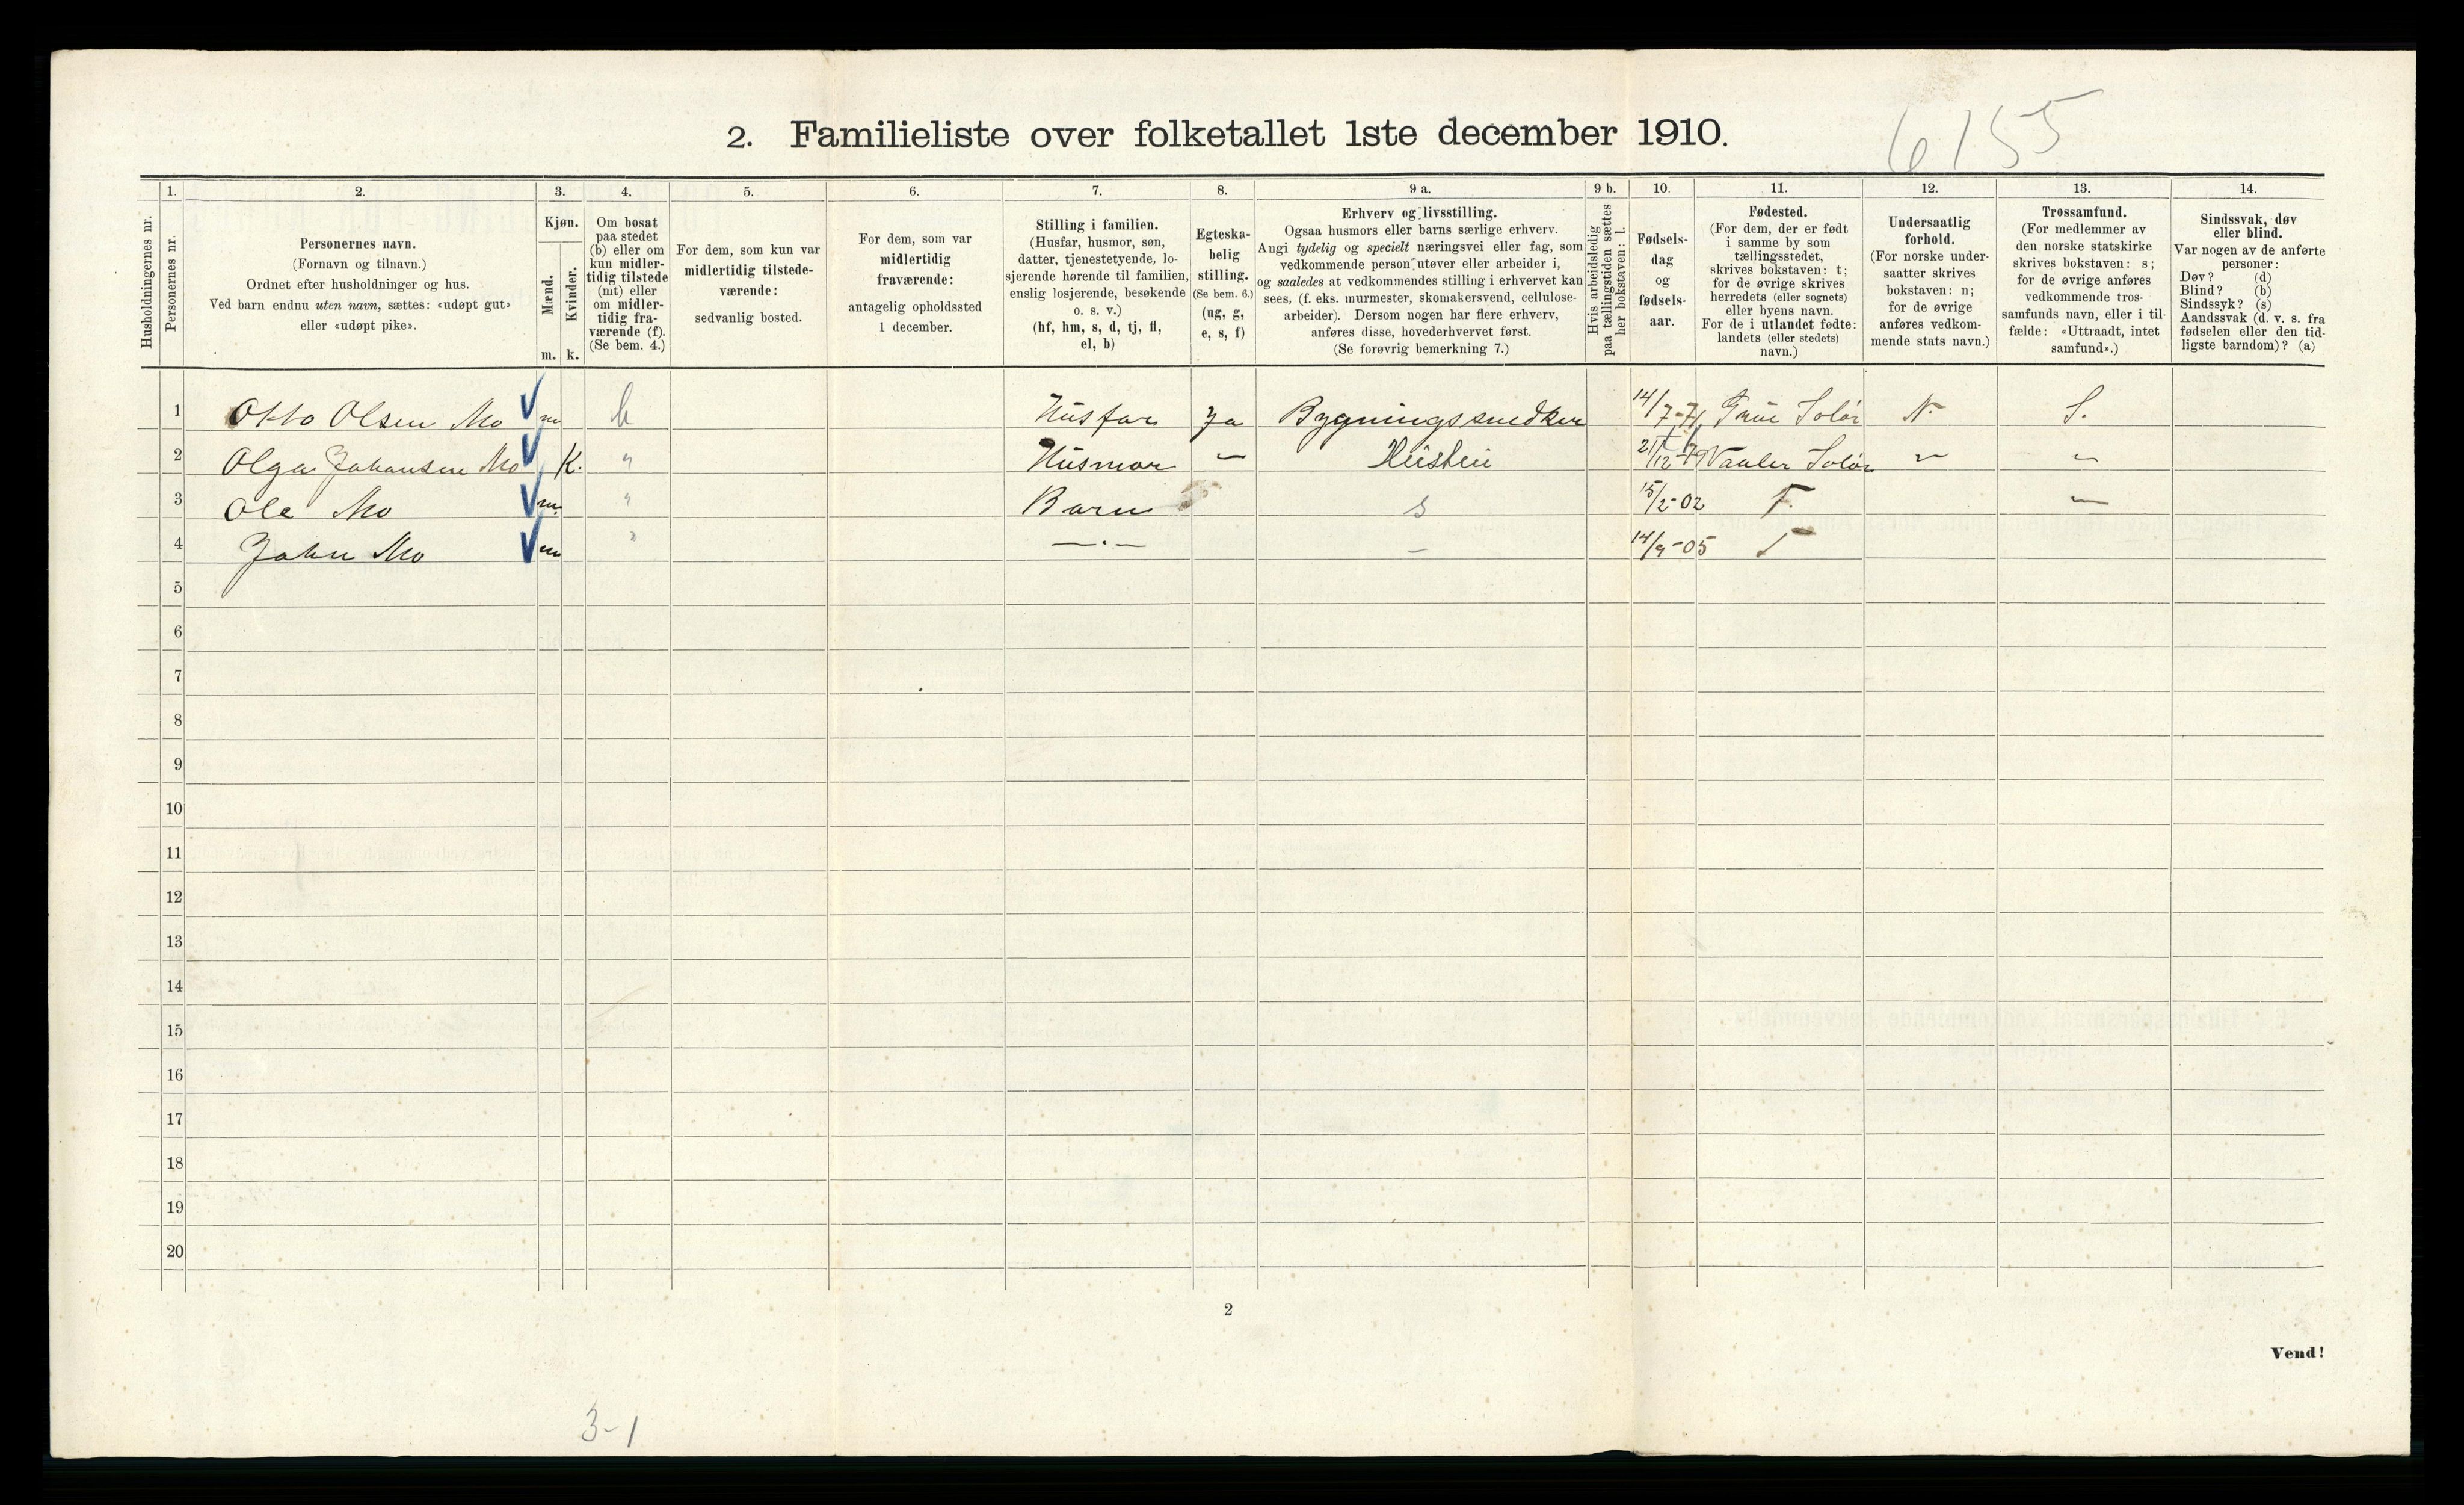 2. Familieliste over folketallet 1ste december 1910.
6155
Husholdningernes nr.
1. Personernes nr.
2. Personernes navn. (Fornavn og tilnavn.) Ordnet efter husholdninger og hus. Ved barn endnu uten navn, sættes: «udøpt gut» eller «udøpt pike».
3. Kjøn. Mænd. m. Kvinder. k.
4. Om bosat paa stedet (b) eller om kun midlertidig tilstede (mt) eller om midlertidig fraværende (f). (Se bem. 4.)
5. For dem, som kun var midlertidig tilstedeværende: sedvanlig bosted.
6. For dem, som var midlertidig fraværende: antagelig opholdssted 1 december.
7. Stilling i familien. (Husfar, husmor, søn, datter, tjenestetyende, losjerende hørende til familien, enslig losjerende, besøkende o. s. v.) (hf, hm, s, d, tj, fl, el, b)
8. Egteskabelig stilling. (Se bem. 6.) (ug, g, e, s, f)
9 a. Erhverv og livsstilling. Ogsaa husmors eller barns særlige erhverv. Angi tydelig og specielt næringsvei eller fag, som vedkommende person utøver eller arbeider i, og saaledes at vedkommendes stilling i erhvervet kan sees, (f. eks. murmester, skomakersvend, cellulosearbeider). Dersom nogen har flere erhverv, anføres disse, hovederhvervet først. (Se forøvrig bemerkning 7.)
9 b. Hvis arbeidsledig paa tællingstiden sættes her bokstaven: l.
10. Fødselsdag og fødselsaar.
11. Fødested. (For dem, der er født i samme by som tællingsstedet, skrives bokstaven: t; for de øvrige skrives herredets (eller sognets) eller byens navn. For de i utlandet fødte: landets (eller stedets) navn.)
12. Undersaatlig forhold. (For norske undersaatter skrives bokstaven: n; for de øvrige anføres vedkommende stats navn.)
13. Trossamfund. (For medlemmer av den norske statskirke skrives bokstaven: s; for de øvrige anføres vedkommende trossamfunds navn, eller i tilfælde: «Uttraadt, intet samfund».)
14. Sindssvak, døv eller blind. Var nogen av de anførte personer: Døv? (d) Blind? (b) Sindssyk? (s) Aandssvak (d. v. s. fra fødselen eller den tidligste barndom)? (a)
1 Otto Olsen Mo m b Husfar Ja Bygningssnedker 14/7-71 Grue Solør N. S.
2 Olga Johansen Mo K. " Husmor — 21/12-79 Vaaler Solør " "
3 Ole Mo m. " Barn s 15/2-02 T. —
4 John Mo m " —.— — 14/9-05 T
5
6
7
8
9
10
11
12
13
14
15
16
17
18
19
20
2
Vend!
3-1